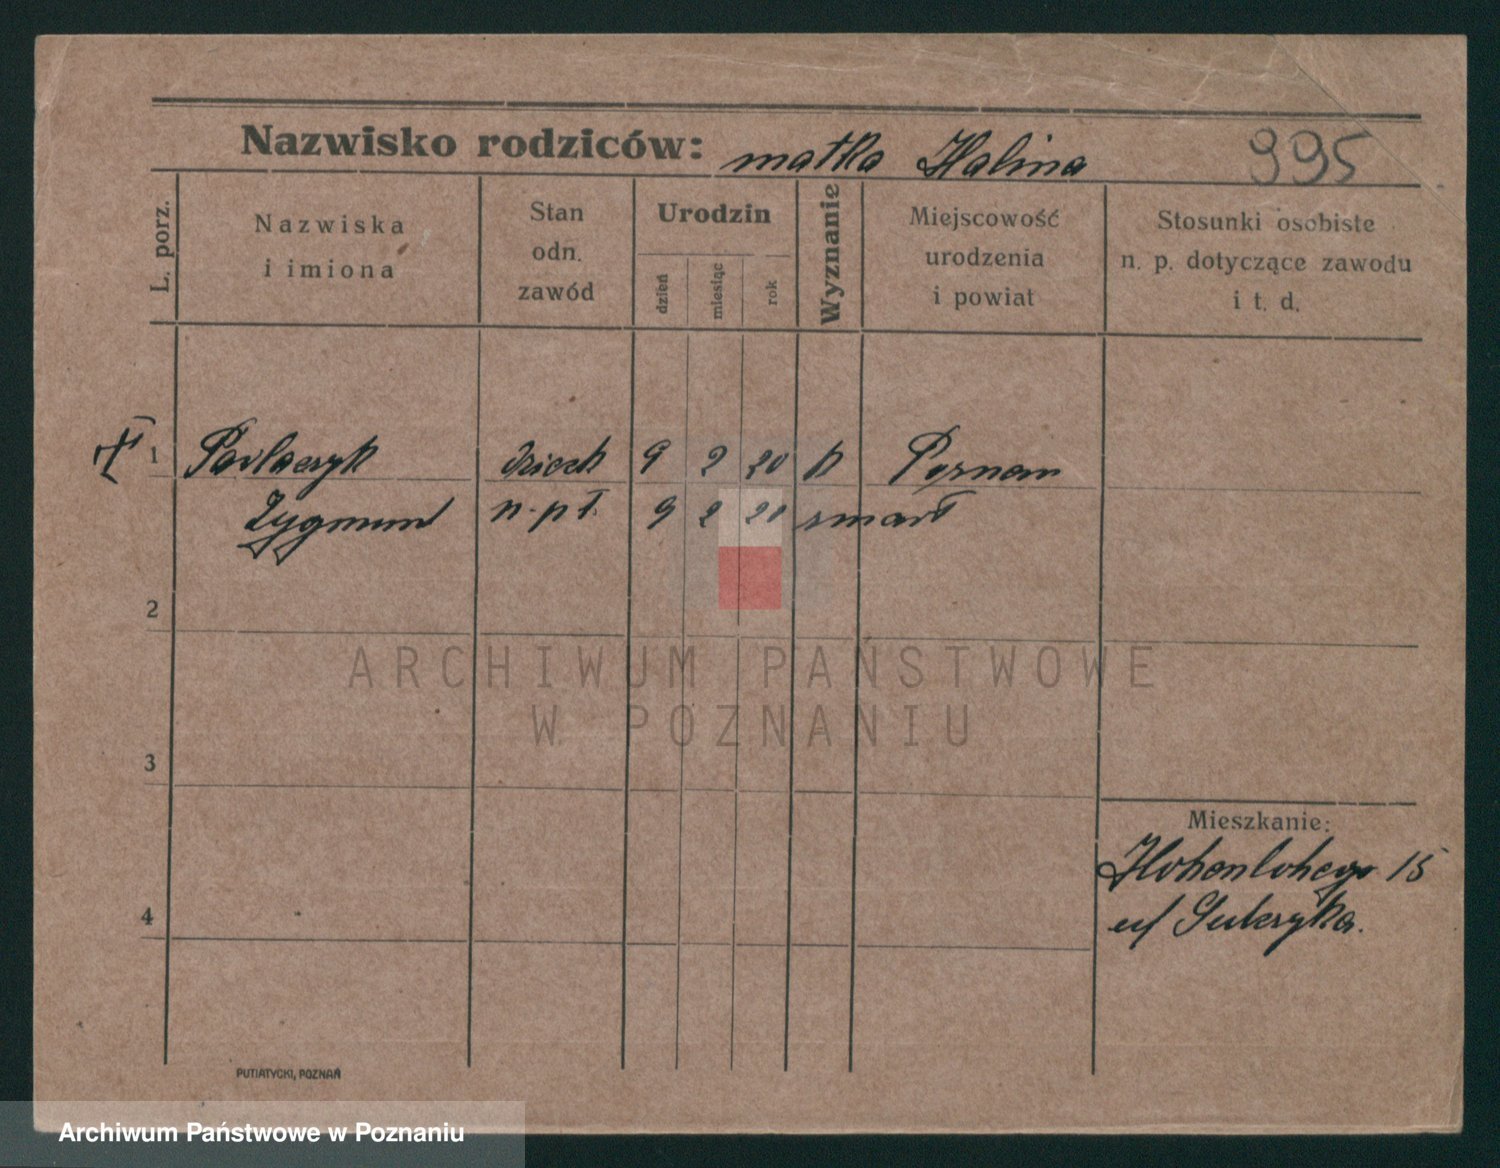 Nazwisko rodziców: matka Halina
995
L. porz.
Nazwiska
i imiona
Stan
odn.
zawód
Urodzin
dzień
miesiąc
rok
Wyznanie
Miejscowość
urodzenia
i powiat
Stosunki osobiste
n. p. dotyczące zawodu
i t. d.
1 Pawlaczyk dzieck 9 2 20 k Poznan
Zygmunt n. pł. 9 2 20 zmarł
2
3
4
Mieszkanie:
Hohenlohego 15
u/ Gulczyka.
PUTIATYCKI, POZNAŃ
ARCHIWUM PAŃSTWOWE
W POZNANIU
Archiwum Państwowe w Poznaniu